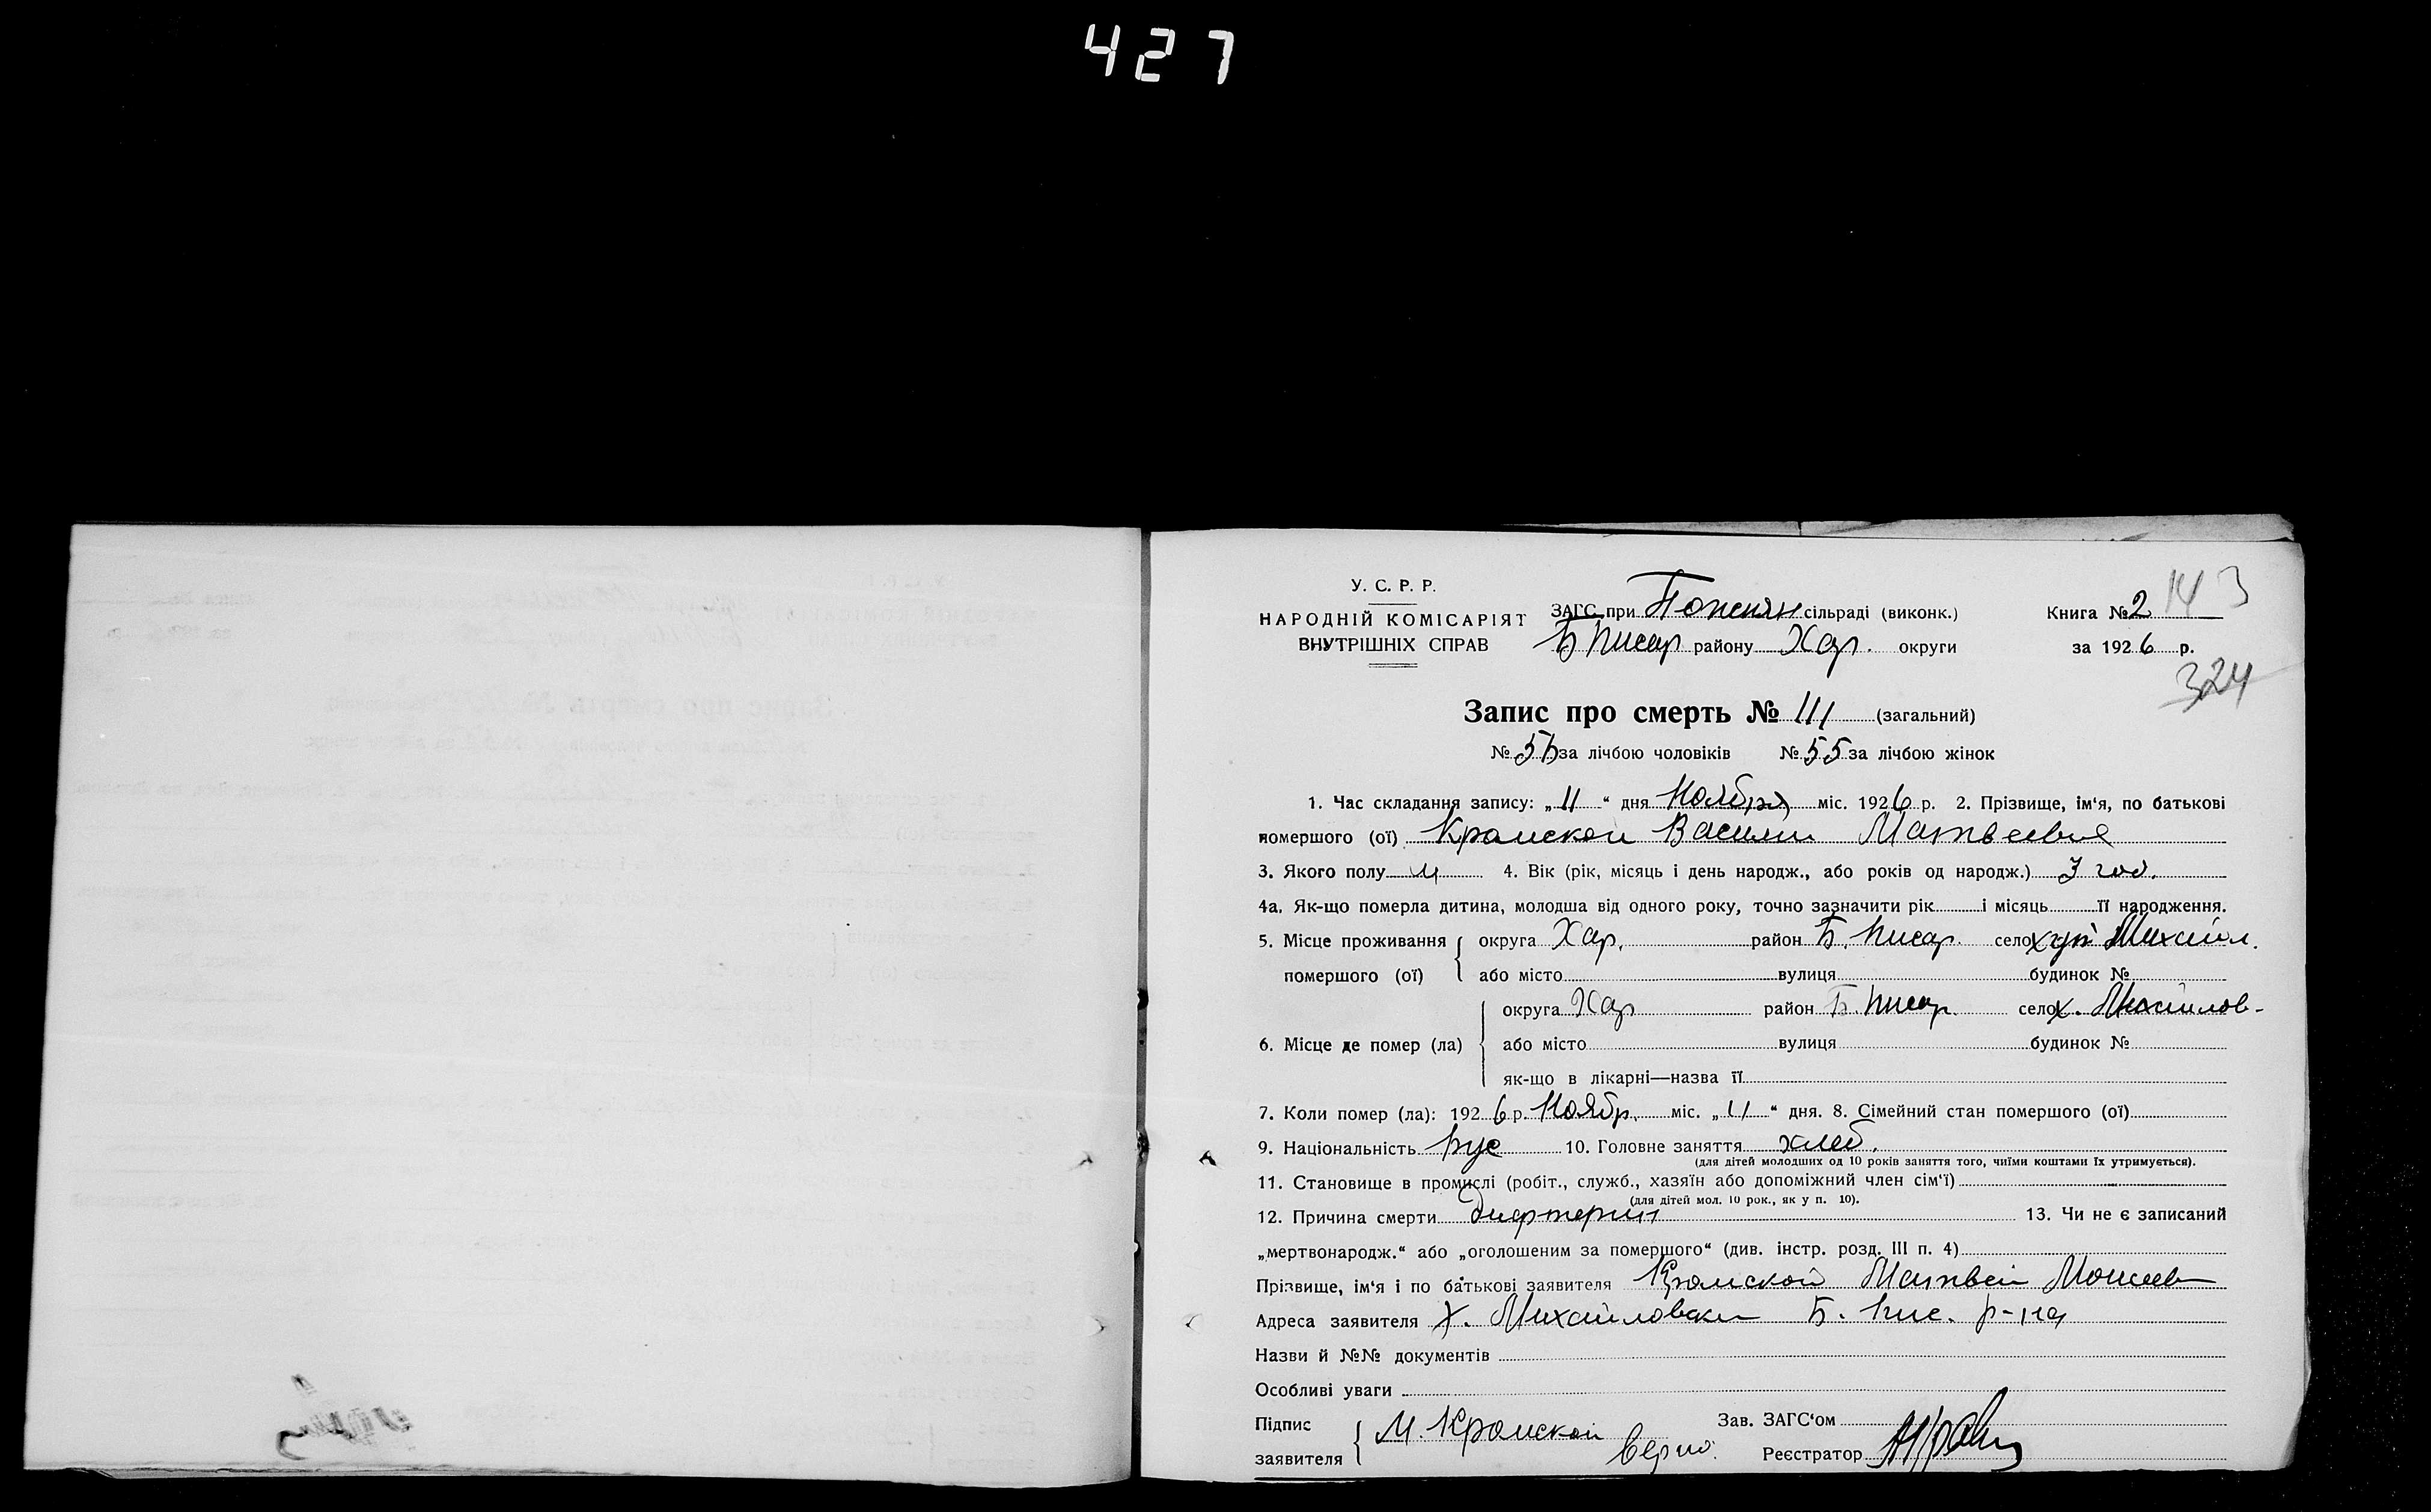 427
У. С. Р. Р.
НАРОДНІЙ КОМІСАРІЯТ
ВНУТРІШНІХ СПРАВ
ЗАГС при Пожнян сільраді (виконк.)
Б Писар району Хар. округи
Книга № 2
143
за 1926 р.
324
Запис про смерть № 111 (загальний)
№ 56 за лічбою чоловіків № 55 за лічбою жінок
1. Час складання запису: „11“ дня Ноября міс. 1926 р. 2. Прізвище, ім‘я, по батькові
помершого (ої) Крамской Василий Матвеевич
3. Якого полу м 4. Вік (рік, місяць і день народж., або років од народж.) 3 год.
4а. Як-що померла дитина, молодша від одного року, точно зазначити рік і місяць її народження.
5. Місце проживання округа Хар. район Б. Писар. село хут Михайл.
помершого (ої) або місто вулиця будинок №
округа Хар район Б. Писар. село х. Михайлов-
6. Місце де помер (ла) або місто вулиця будинок №
як-що в лікарні—назва її
7. Коли помер (ла): 1926 р. Ноябр. міс. „11“ дня. 8. Сімейний стан помершого (ої)
9. Національність рус 10. Головне заняття хлеб.
(для дітей молодших од 10 років заняття того, чиїми коштами їх утримується).
11. Становище в промислі (робіт., служб., хазяїн або допоміжний член сім‘ї)
(для дітей мол. 10 рок., як у п. 10).
12. Причина смерти дифтерит 13. Чи не є записаний
„мертвонародж.“ або „оголошеним за помершого“ (див. інстр. розд. III п. 4)
Прізвище, ім‘я і по батькові заявителя Крамской Матвей Моисеев
Адреса заявителя х. Михайловски Б. Пис. р-на
Назви й №№ документів
Особливі уваги
Підпис
заявителя М. Крамской
Верно:
Зав. ЗАГС‘ом
Реєстратор